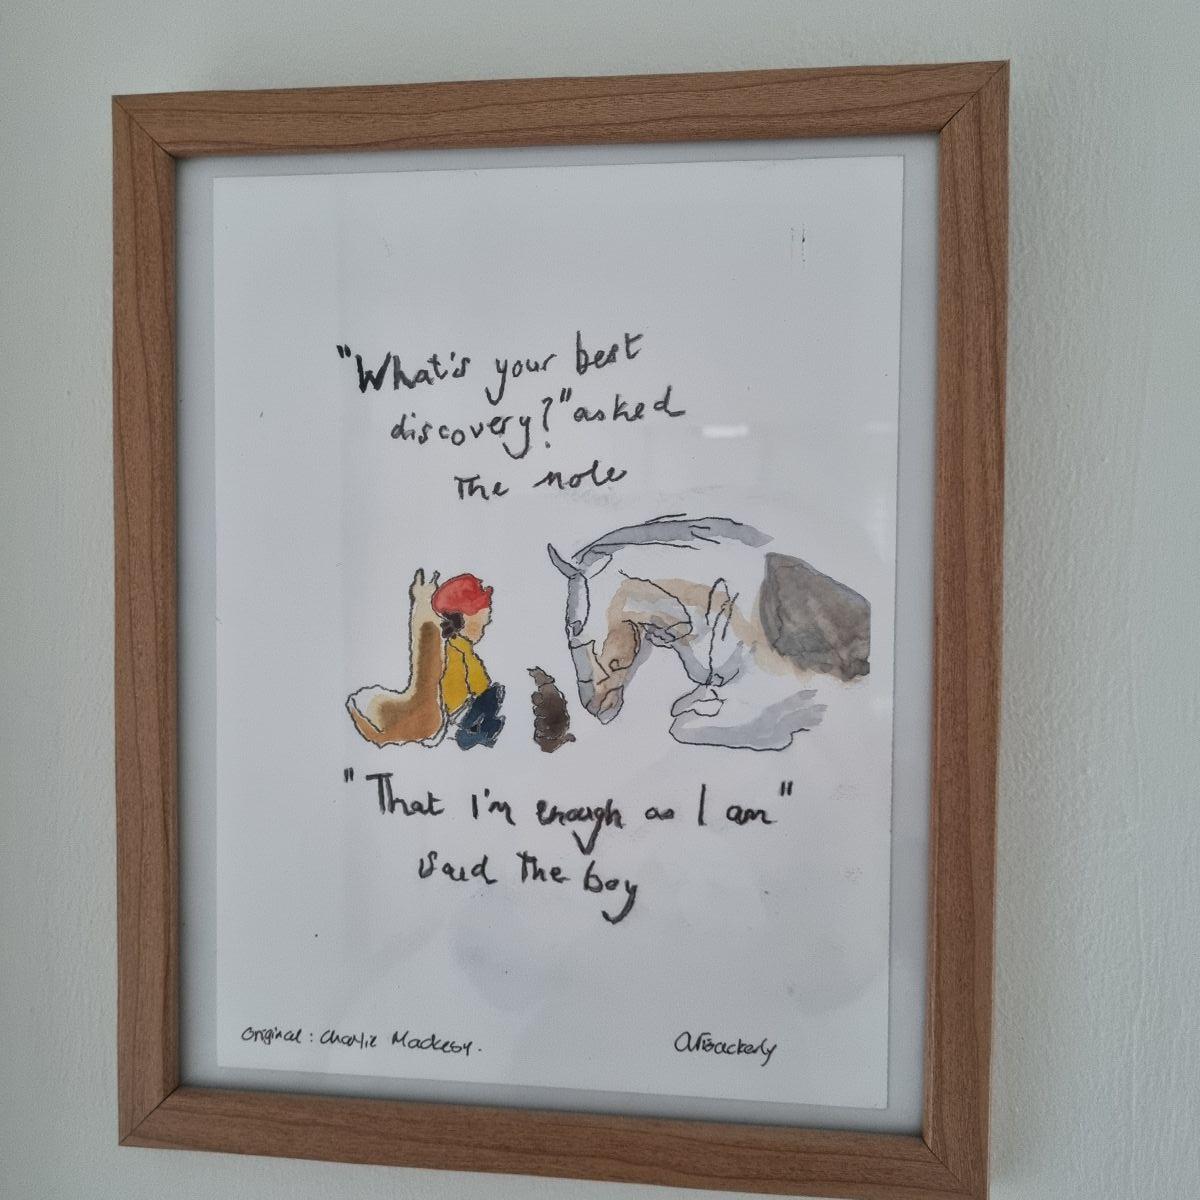 "What's your best
discovery?" asked
The mole
"That I'm enough as I am"
said the boy
Original: Charlie Mackesy.